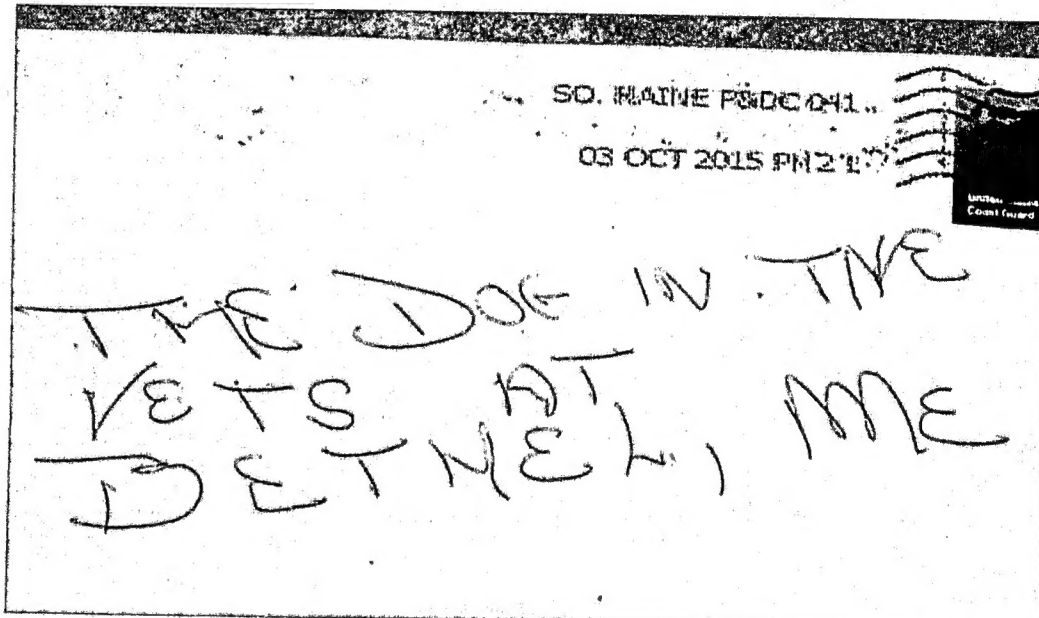 SO. MAINE P&DC 041
03 OCT 2015 PM 2 L
United States
Coast Guard
THE DOG IN THE
VETS AT
BETHEL, ME